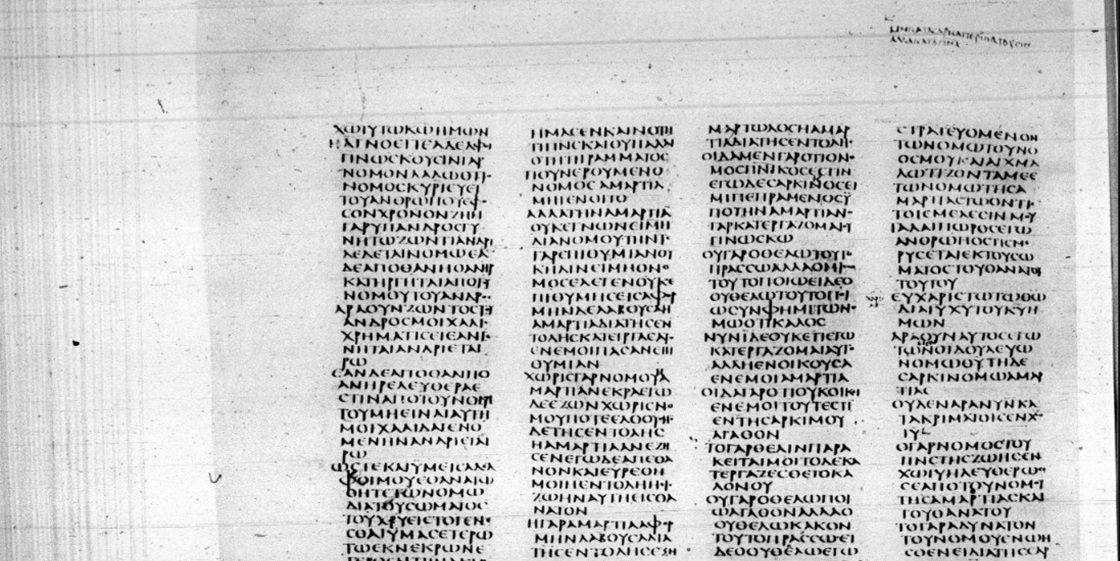 ΧΩΙΥΤΩΚΩΗΜΩΝ
ΗΑΓΝΟΕΙΤΕΑΔΕΛΦΟΙ
ΓΙΝΩϹΚΟΥϹΙΝΓΑΡ
ΝΟΜΟΝΛΑΛΩΟΤΙ
ΝΟΜΟϹΚΥΡΙΕΥΕΙ
ΤΟΥΑΝΘΡΩΠΟΥΕΦ
ΟϹΟΝΧΡΟΝΟΝΖΗΗ
ΓΑΡΥΠΑΝΔΡΟϹΓΥ
ΝΗΤΩΖΩΝΤΙΑΝΔΡΙ
ΔΕΔΕΤΑΙΝΟΜΩΕΑ
ΔΕΑΠΟΘΑΝΗΟΑΝΗΡ
ΚΑΤΗΡΓΗΤΑΙΑΠΟΤΟΥ
ΝΟΜΟΥΤΟΥΑΝΔΡΟϹ
ΑΡΑΟΥΝΖΩΝΤΟϹΤΟΥ
ΑΝΔΡΟϹΜΟΙΧΑΛΙϹ
ΧΡΗΜΑΤΙϹΕΙΕΑΝΓΕ
ΝΗΤΑΙΑΝΔΡΙΕΤΑΙ
ΡΩ
ΕΑΝΔΕΑΠΟΘΑΝΗΟ
ΑΝΗΡΕΛΕΥΘΕΡΑΕ
ϹΤΙΝΑΠΟΤΟΥΝΟΜΟΥ
ΤΟΥΜΗΕΙΝΑΙΑΥΤΗΝ
ΜΟΙΧΑΛΙΔΑΓΕΝΟ
ΜΕΝΗΝΑΝΔΡΙΕΤΑΙ
ΡΩ
ΩϹΤΕΚΑΙΥΜΕΙϹΑΔΕΛ
ΦΟΙΜΟΥΕΘΑΝΑΤΩ
ΘΗΤΕΤΩΝΟΜΩ
ΔΙΑΤΟΥϹΩΜΑΤΟϹ
ΤΟΥΧΥΕΙϹΤΟΓΕΝΕ
ϹΘΑΙΥΜΑϹΕΤΕΡΩ
ΤΩΕΚΝΕΚΡΩΝΕ
ΗΜΑϹΕΝΚΑΙΝΟΤΗΤΙ
ΠΝϹΚΑΙΟΥΠΑΛΑΙ
ΟΤΗΤΙΓΡΑΜΜΑΤΟϹ
ΤΙΟΥΝΕΡΟΥΜΕΝΟ
ΝΟΜΟϹΑΜΑΡΤΙΑ
ΜΗΓΕΝΟΙΤΟ
ΑΛΛΑΤΗΝΑΜΑΡΤΙΑΝ
ΟΥΚΕΓΝΩΝΕΙΜΗ
ΔΙΑΝΟΜΟΥΤΗΝΤΕ
ΓΑΡΕΠΙΘΥΜΙΑΝΟΥ
ΚΗΔΙΝΕΙΜΗΟΝΟ
ΜΟϹΕΛΕΓΕΝΟΥΚΕ
ΠΙΘΥΜΗϹΕΙϹΑΦΟΡ
ΜΗΝΔΕΛΑΒΟΥϹΑΗ
ΑΜΑΡΤΙΑΔΙΑΤΗϹΕΝ
ΤΟΛΗϹΚΑΤΕΙΡΓΑϹΑΤΟ
ΕΝΕΜΟΙΠΑϹΑΝΕΠΙ
ΘΥΜΙΑΝ
ΧΩΡΙϹΓΑΡΝΟΜΟΥΑ
ΜΑΡΤΙΑΝΕΚΡΑΕΓΩ
ΔΕΕΖΩΝΧΩΡΙϹΝΟ
ΜΟΥΠΟΤΕΕΛΘΟΥϹΗϹ
ΔΕΤΗϹΕΝΤΟΛΗϹ
ΗΑΜΑΡΤΙΑΑΝΕΖΗ
ϹΕΝΕΓΩΔΕΑΠΕΘΑ
ΝΟΝΚΑΙΕΥΡΕΘΗ
ΜΟΙΗΕΝΤΟΛΗΗΕΙϹ
ΖΩΗΝΑΥΤΗΕΙϹΘΑ
ΝΑΤΟΝ
ΗΓΑΡΑΜΑΡΤΙΑΑΦΟΡ
ΜΗΝΛΑΒΟΥϹΑΔΙΑ
ΤΗϹΕΝΤΟΛΗϹΕΞΗ
ΜΑΡΤΩΛΟϹΗΑΜΑΡ
ΤΙΑΔΙΑΤΗϹΕΝΤΟΛΗϹ
ΟΙΔΑΜΕΝΓΑΡΟΤΙΟΝΟ
ΜΟϹΠΝΙΚΟϹΕϹΤΙΝ
ΕΓΩΔΕϹΑΡΚΙΝΟϹΕΙ
ΜΙΠΕΠΡΑΜΕΝΟϹΥ
ΠΟΤΗΝΑΜΑΡΤΙΑΝΟ
ΓΑΡΚΑΤΕΡΓΑΖΟΜΑΙΟΥ
ΓΙΝΩϹΚΩ
ΟΥΓΑΡΟΘΕΛΩΤΟΥΤΟ
ΠΡΑϹϹΩΑΛΛΑΟΜΙϹΩ
ΤΟΥΤΟΠΟΙΩΕΙΔΕΟ
ΟΥΘΕΛΩΤΟΥΤΟΠΟΙΩ
ϹΥΝΦΗΜΙΤΩΝΟ
ΜΩΟΤΙΚΑΛΟϹ
ΝΥΝΙΔΕΟΥΚΕΤΙΕΓΩ
ΚΑΤΕΡΓΑΖΟΜΑΙΑΥΤΟ
ΑΛΛΗΕΝΟΙΚΟΥϹΑ
ΕΝΕΜΟΙΑΜΑΡΤΙΑ
ΟΙΔΑΓΑΡΟΤΙΟΥΚΟΙΚΕΙ
ΕΝΕΜΟΙΤΟΥΤΕϹΤΙ
ΕΝΤΗϹΑΡΚΙΜΟΥ
ΑΓΑΘΟΝ
ΤΟΓΑΡΘΕΛΙΝΠΑΡΑ
ΚΕΙΤΑΙΜΟΙΤΟΔΕΚΑ
ΤΕΡΓΑΖΕϹΘΕΤΟΚΑ
ΛΟΝΟΥ
ΟΥΓΑΡΟΘΕΛΩΠΟΙ
ΩΑΓΑΘΟΝΑΛΛΑΟ
ΟΥΘΕΛΩΚΑΚΟΝ
ΤΟΥΤΟΠΡΑϹϹΩΕΙ
ΔΕΟΟΥΘΕΛΩΕΓΩ
ϹΤΡΑΤΕΥΟΜΕΝΟΝ
ΤΩΝΟΜΩΤΟΥΝΟ
ΟϹΜΟΥΚΑΙΑΙΧΜΑ
ΛΩΤΙΖΟΝΤΑΜΕΕ
ΤΩΝΟΜΩΤΗϹΑ
ΜΑΡΤΙΑϹΤΩΟΝΤΙ
ΤΟΙϹΜΕΛΕϹΙΝΜΟΥ
ΤΑΛΑΙΠΩΡΟϹΕΓΩ
ΑΝΘΡΩΠΟϹΤΙϹΜΕ
ΡΥϹΕΤΑΙΕΚΤΟΥϹΩ
ΜΑΤΟϹΤΟΥΘΑΝΑΤΟΥ
ΤΟΥΤΟΥ
ΕΥΧΑΡΙϹΤΩΤΩΘΩ
ΔΙΑΙΥΧΥΤΟΥΚΥΗ
ΜΩΝ
ΑΡΑΟΥΝΑΥΤΟϹΕΓΩ
ΤΩΝΟΙΔΟΥΛΕΥΩ
ΝΟΜΩΘΥΤΗΔΕ
ϹΑΡΚΙΝΟΜΩΑΜΑΡ
ΤΙΑϹ
ΟΥΔΕΝΑΡΑΝΥΝΚΑ
ΤΑΚΡΙΜΑΤΟΙϹΕΝΧΩ
ΙΥ
ΟΓΑΡΝΟΜΟϹΤΟΥ
ΠΝϹΤΗϹΖΩΗϹΕΝ
ΧΩΙΥΗΛΕΥΘΕΡΩ
ϹΕΑΠΟΤΟΥΝΟΜΟΥ
ΤΗϹΑΜΑΡΤΙΑϹΚΑΙ
ΤΟΥΘΑΝΑΤΟΥ
ΤΟΓΑΡΑΔΥΝΑΤΟΝ
ΤΟΥΝΟΜΟΥΕΝΩΗ
ϹΘΕΝΕΙΔΙΑΤΗϹϹΑΡ